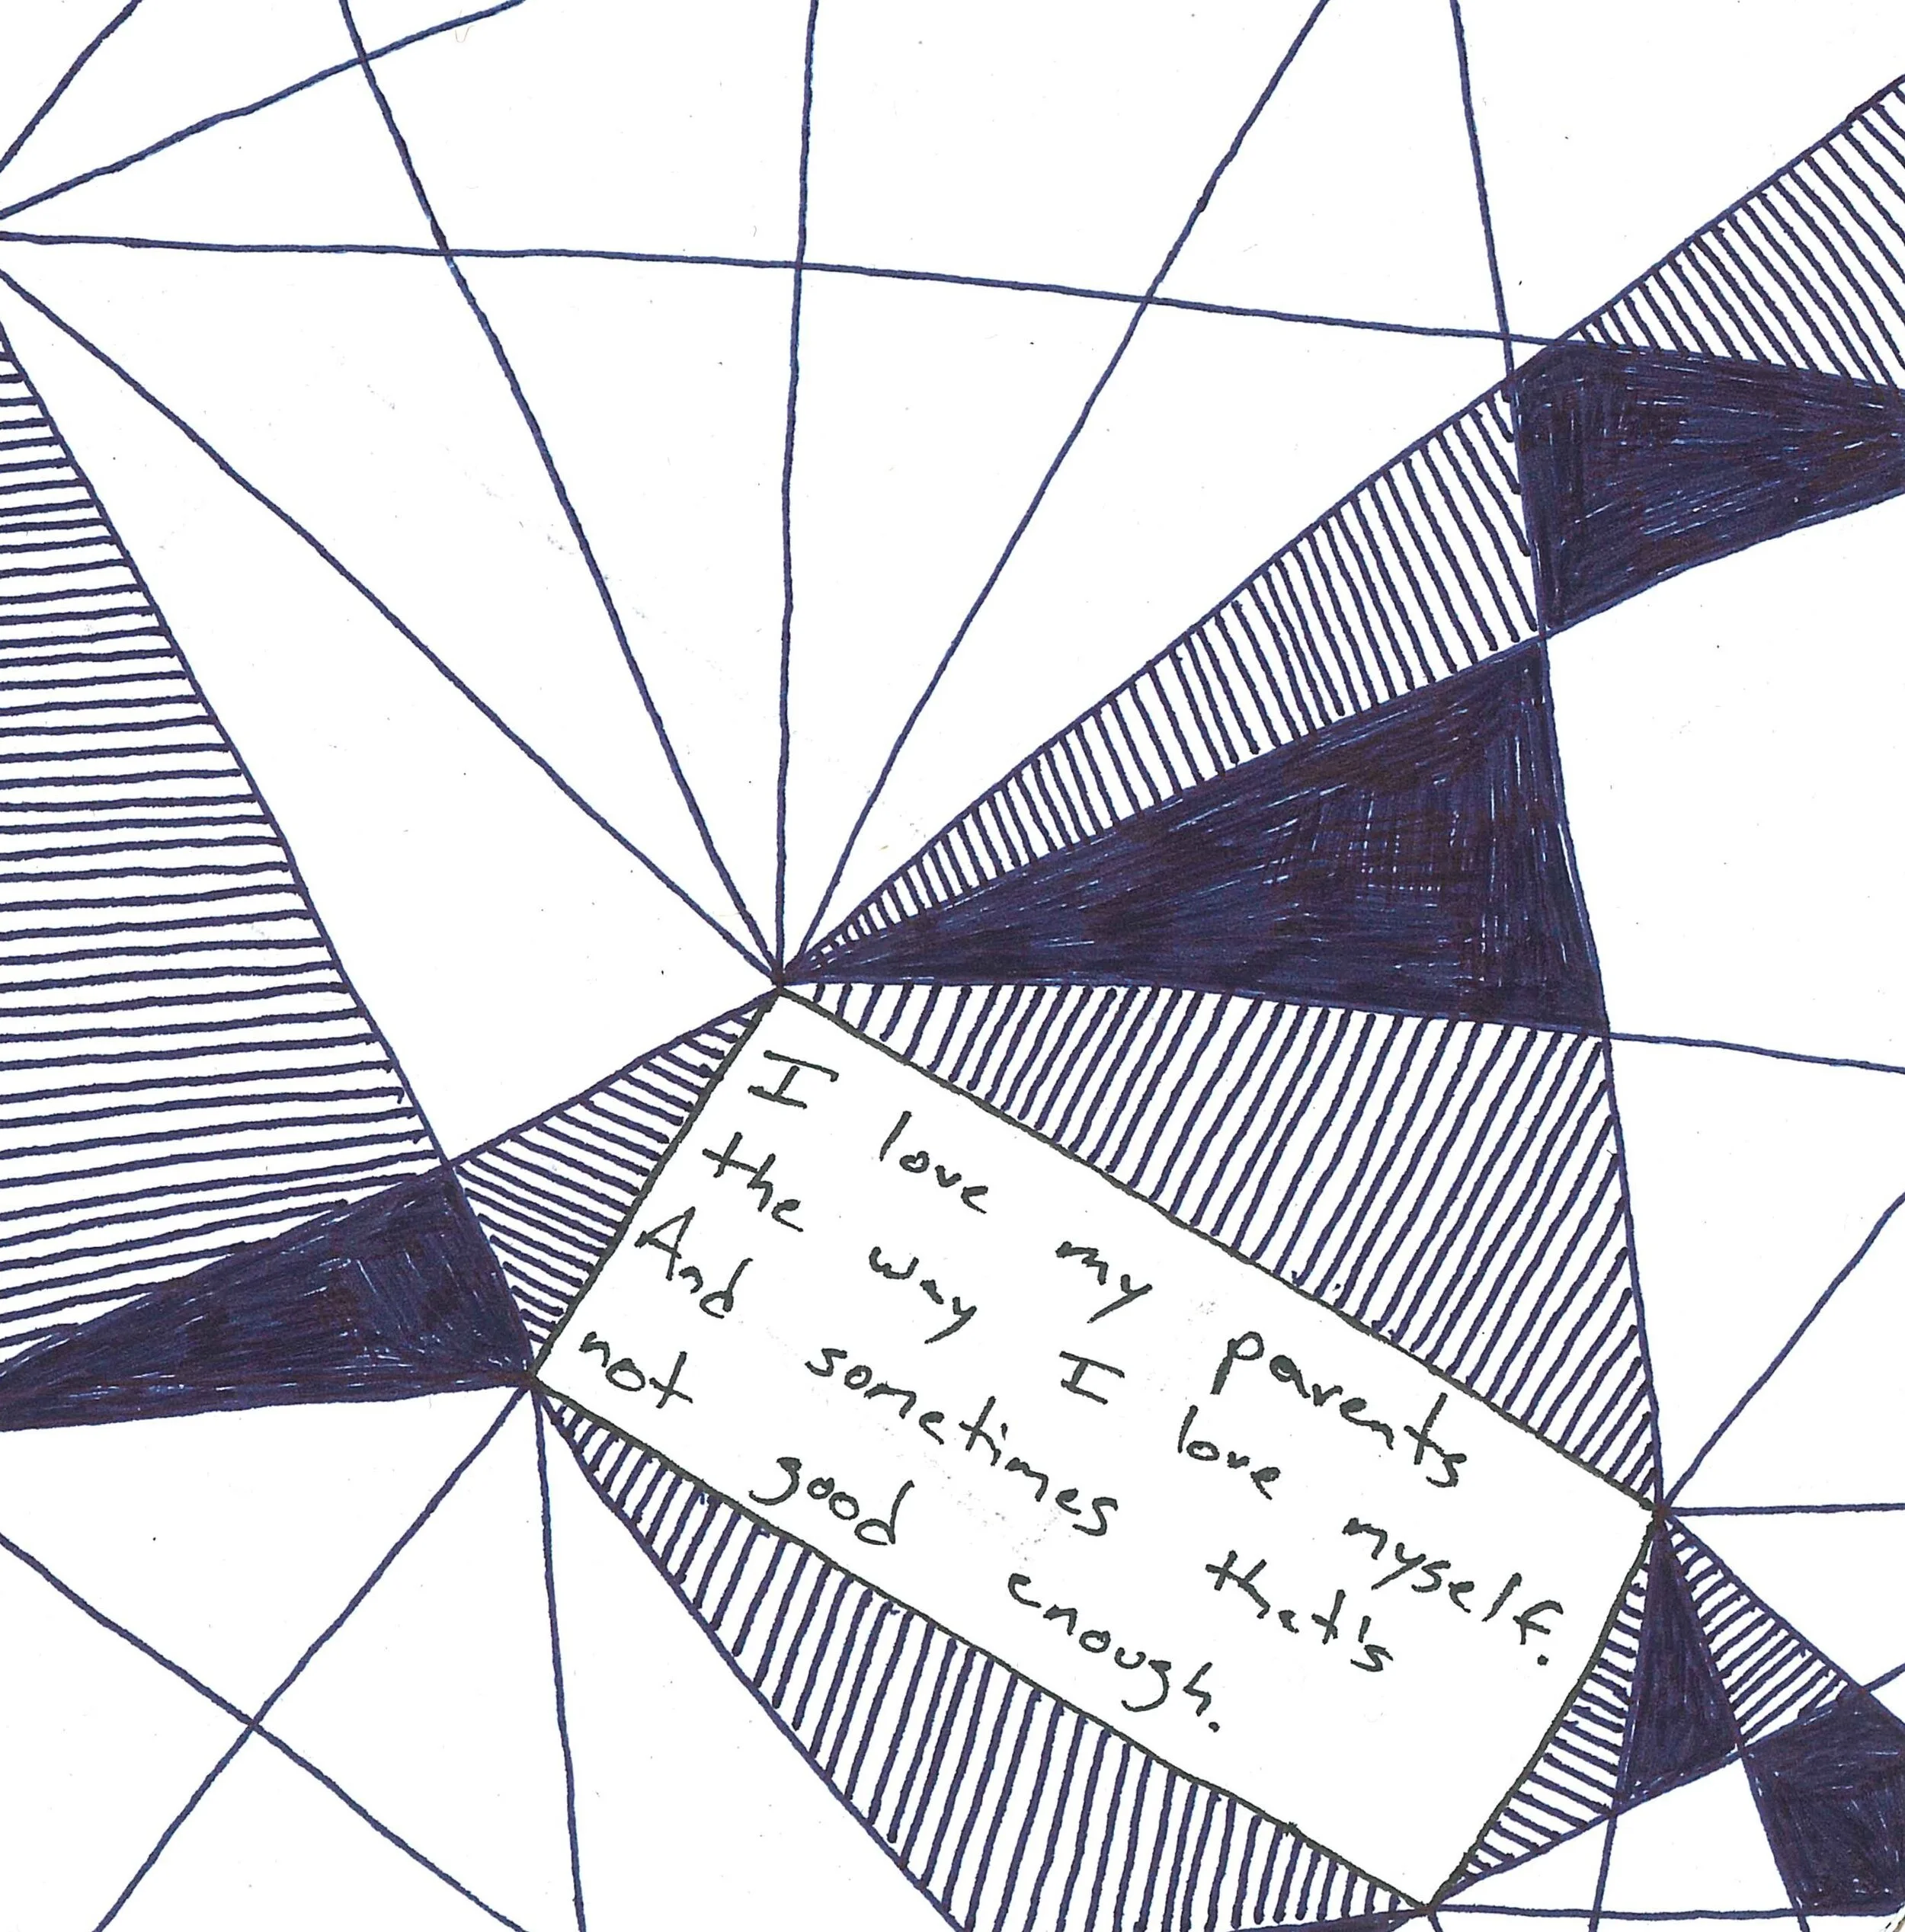 I love my parents
the way I love myself.
And sometimes that's
not good enough.